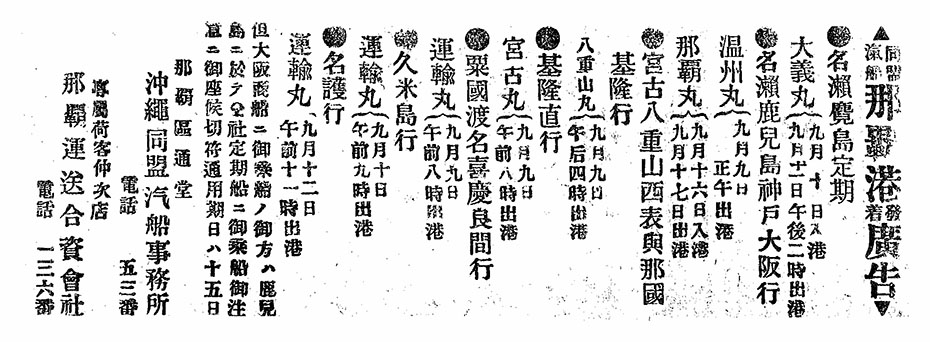 ▲同盟汽船那覇港発着廣告▼
●名瀬覺島定期
大義丸 九月十日入港
九月十一日午後二時出港
●名瀬鹿兒島神戸大阪行
温州丸 九月九日
正午出港
那覇丸 九月十六日入港
九月十七日出港
●宮古八重山西表與那國
基隆行
八重山丸 九月九日
午后四時出港
●基隆直行
宮古丸 九月九日
午前八時出港
●粟國渡名喜慶良間行
運輸丸 九月九日
午前八時出港
●久米島行
運輸丸 九月十日
午前九時出港
●名護行
運輸丸 九月十二日
午前十一時出港
但大阪商船ニ御乘船ノ御方ハ鹿兒
島ニ於テ公社定期船ニ御乘船御注
意ニ御座候切符通用期日ハ十五日
那覇區通堂
沖繩同盟汽船事務所
電話 五三番
專屬荷客仲次店
那覇運送合資會社
電話 一三六番